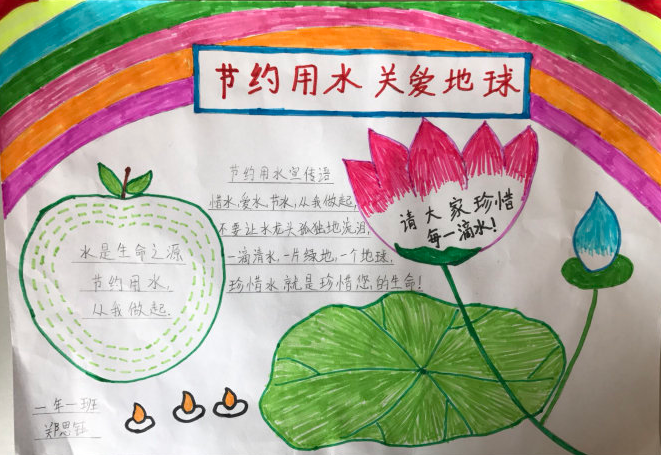 节约用水 关爱地球
节约用水宣传语
惜水,爱水,节水,从我做起,
不要让水龙头孤独地流泪,
一滴清水,一片绿地,一个地球,
珍惜水就是珍惜您的生命!
请大家珍惜
每一滴水!
水是生命之源
节约用水,
从我做起.
一年一班
郑思钰